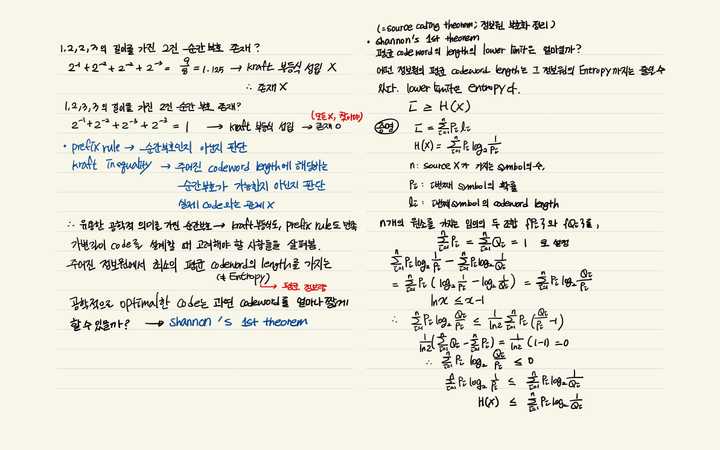 1,2,2,3의 길이를 가진 2진 순간부호 존재?
2⁻¹+2⁻²+2⁻²+2⁻³ = 9/8 = 1.125 → Kraft 부등식 성립 X
∴ 존재 X
1,2,3,3의 길이를 가진 2진 순간 부호 존재?
2⁻¹+2⁻²+2⁻³+2⁻³ = 1 → Kraft 부등식 성립 → 존재 O
• prefix rule → 순간부호인지 아닌지 판단
Kraft Inequality → 주어진 codeword length에 해당하는
순간부호가 가능한지 아닌지 판단
실제 code와는 관계 X
∴ 유용한 공학적 의미를 가진 순간부호 → Kraft 부등식도, prefix rule도 만족
가변길이 code를 설계할 때 고려해야 할 사항들을 살펴봄.
주어진 정보원에서 최소의 평균 codeword의 length를 가지는
(≠ Entropy)
→ 평균 정보량
공학적으로 optimal한 code는 과연 codeword를 얼마나 짧게
할 수 있을까? → Shannon's 1st theorem
(=source coding theorem; 정보원 부호화 정리)
• Shannon's 1st theorem
평균 codeword의 length의 lower limit은 얼마일까?
어떤 정보원의 평균 codeword length는 그 정보원의 Entropy까지는 줄일 수
있다. lower limit은 entropy다.
L̄ ≥ H(X)
증명 L̄ = Σᵢ₌₁ⁿ Pᵢ lᵢ
H(X) = Σᵢ₌₁ⁿ Pᵢ log₂ 1/Pᵢ
n: source X가 가지는 symbol의 수,
Pᵢ: i번째 symbol의 확률
lᵢ: i번째 symbol의 codeword length
n개의 원소를 가지는 임의의 두 조합 {Pᵢ}와 {Qᵢ}를,
Σᵢ₌₁ⁿ Pᵢ = Σᵢ₌₁ⁿ Qᵢ = 1 로 설정
Σᵢ₌₁ⁿ Pᵢ log₂ 1/Pᵢ - Σᵢ₌₁ⁿ Pᵢ log₂ 1/Qᵢ
= Σᵢ₌₁ⁿ Pᵢ (log₂ 1/Pᵢ - log₂ 1/Qᵢ) = Σᵢ₌₁ⁿ Pᵢ log₂ Qᵢ/Pᵢ
ln x ≤ x-1
∴ Σᵢ₌₁ⁿ Pᵢ log₂ Qᵢ/Pᵢ ≤ 1/ln2 Σᵢ₌₁ⁿ Pᵢ (Qᵢ/Pᵢ -1)
1/ln2 (Σᵢ₌₁ⁿ Qᵢ - Σᵢ₌₁ⁿ Pᵢ) = 1/ln2 (1-1) = 0
∴ Σᵢ₌₁ⁿ Pᵢ log₂ Qᵢ/Pᵢ ≤ 0
Σᵢ₌₁ⁿ Pᵢ log₂ 1/Pᵢ ≤ Σᵢ₌₁ⁿ Pᵢ log₂ 1/Qᵢ
H(X) ≤ Σᵢ₌₁ⁿ Pᵢ log₂ 1/Qᵢ